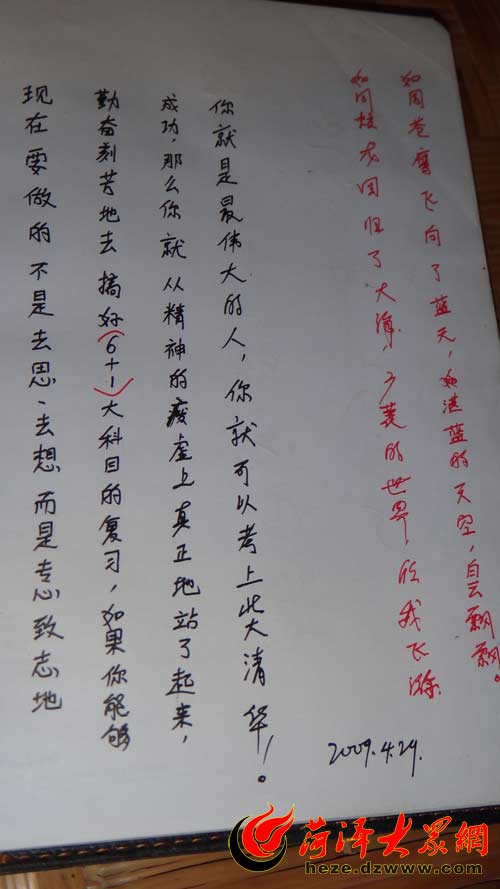 现在要做的不是去思、去想而是专心致志地
勤奋刻苦地去搞好(6+1)大科目的复习，如果你能够
成功，那么你就从精神的废虚上真正地站了起来，
你就是最伟大的人，你就可以考上北大清华！。
如同蛟龙回归了大海，广袤的世界，任我飞游
如同苍鹰飞向了蓝天，湛蓝的天空，白云飘飘。
2009.4.29.
菏泽大眾網
heze.dzwww.com